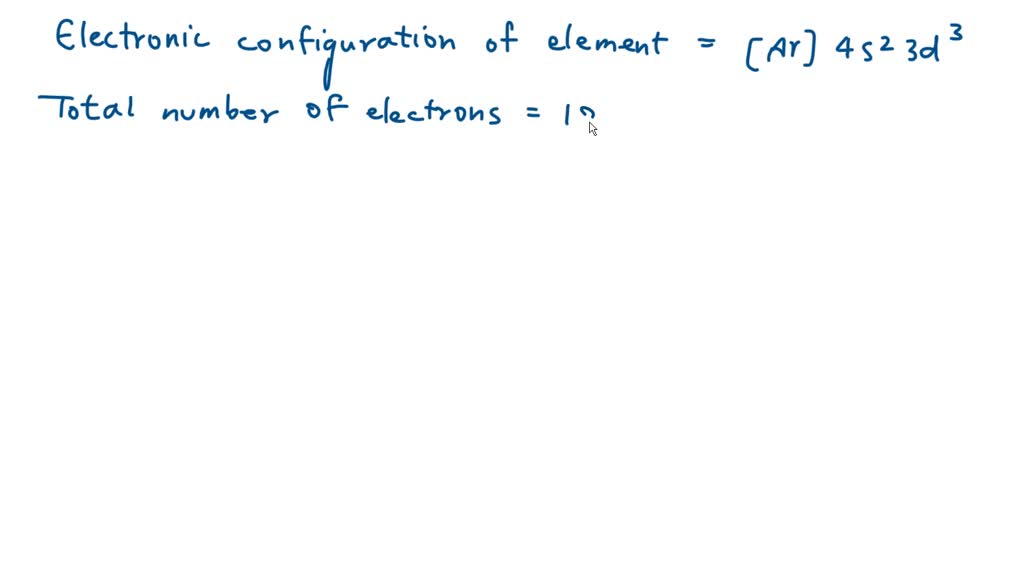 Electronic configuration of element = [Ar] 4s² 3d³
Total number of electrons = 1